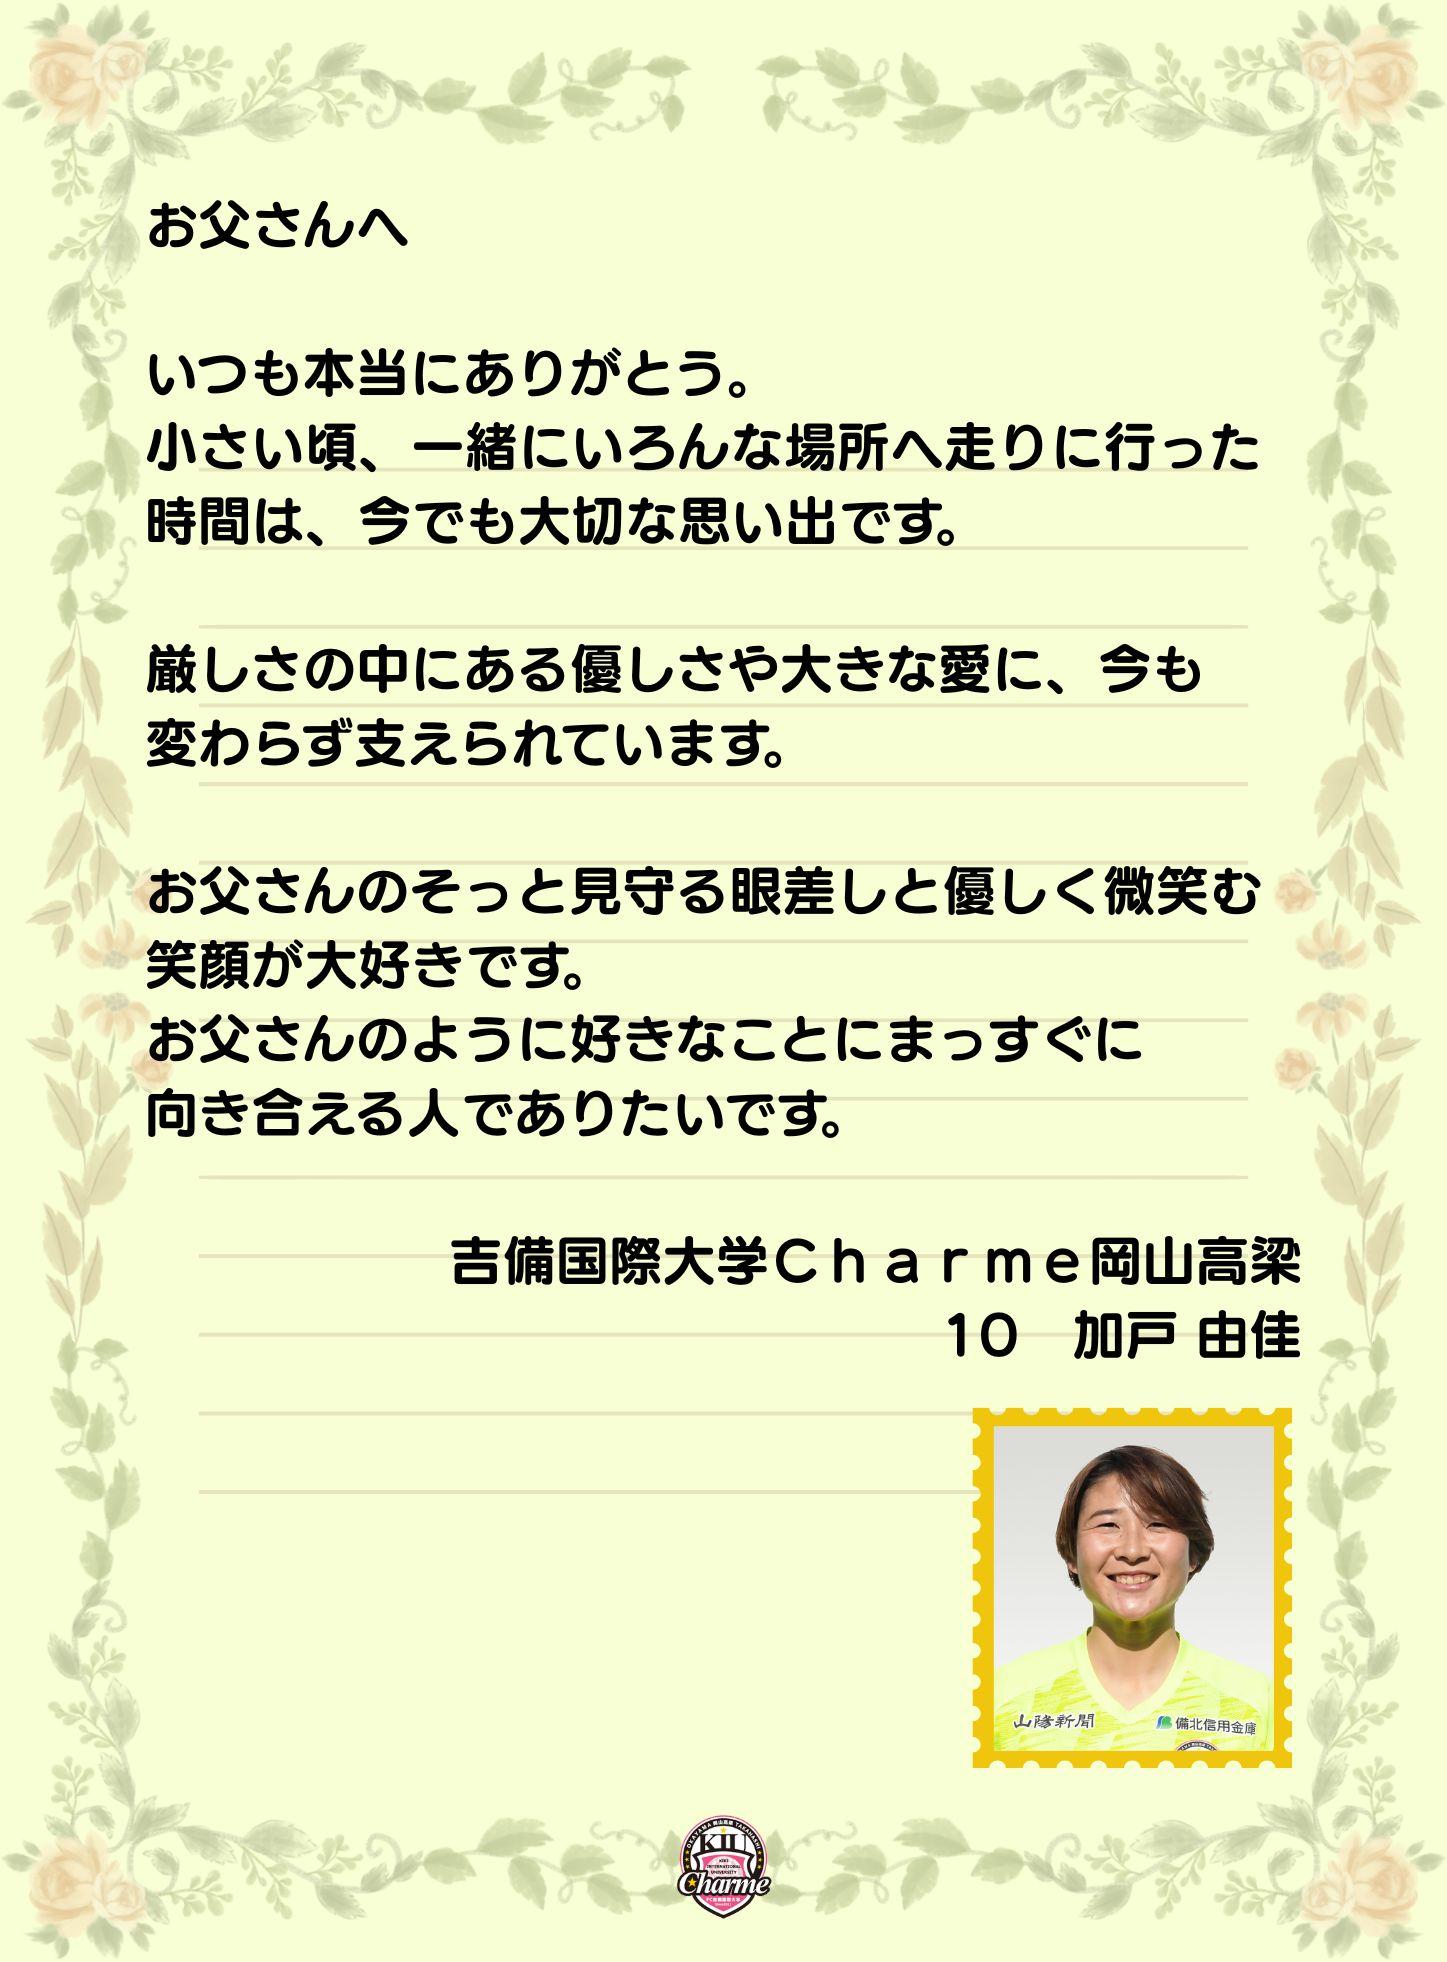 お父さんへ
いつも本当にありがとう。
小さい頃、一緒にいろんな場所へ走りに行った
時間は、今でも大切な思い出です。
厳しさの中にある優しさや大きな愛に、今も
変わらず支えられています。
お父さんのそっと見守る眼差しと優しく微笑む
笑顔が大好きです。
お父さんのように好きなことにまっすぐに
向き合える人でありたいです。
吉備国際大学Ｃｈａｒｍｅ岡山高梁
10　加戸 由佳
山陽新聞
備北信用金庫
OKAYAMA 岡山高梁 TAKAHASHI
KIU
KIBI
INTERNATIONAL
UNIVERSITY
Charme